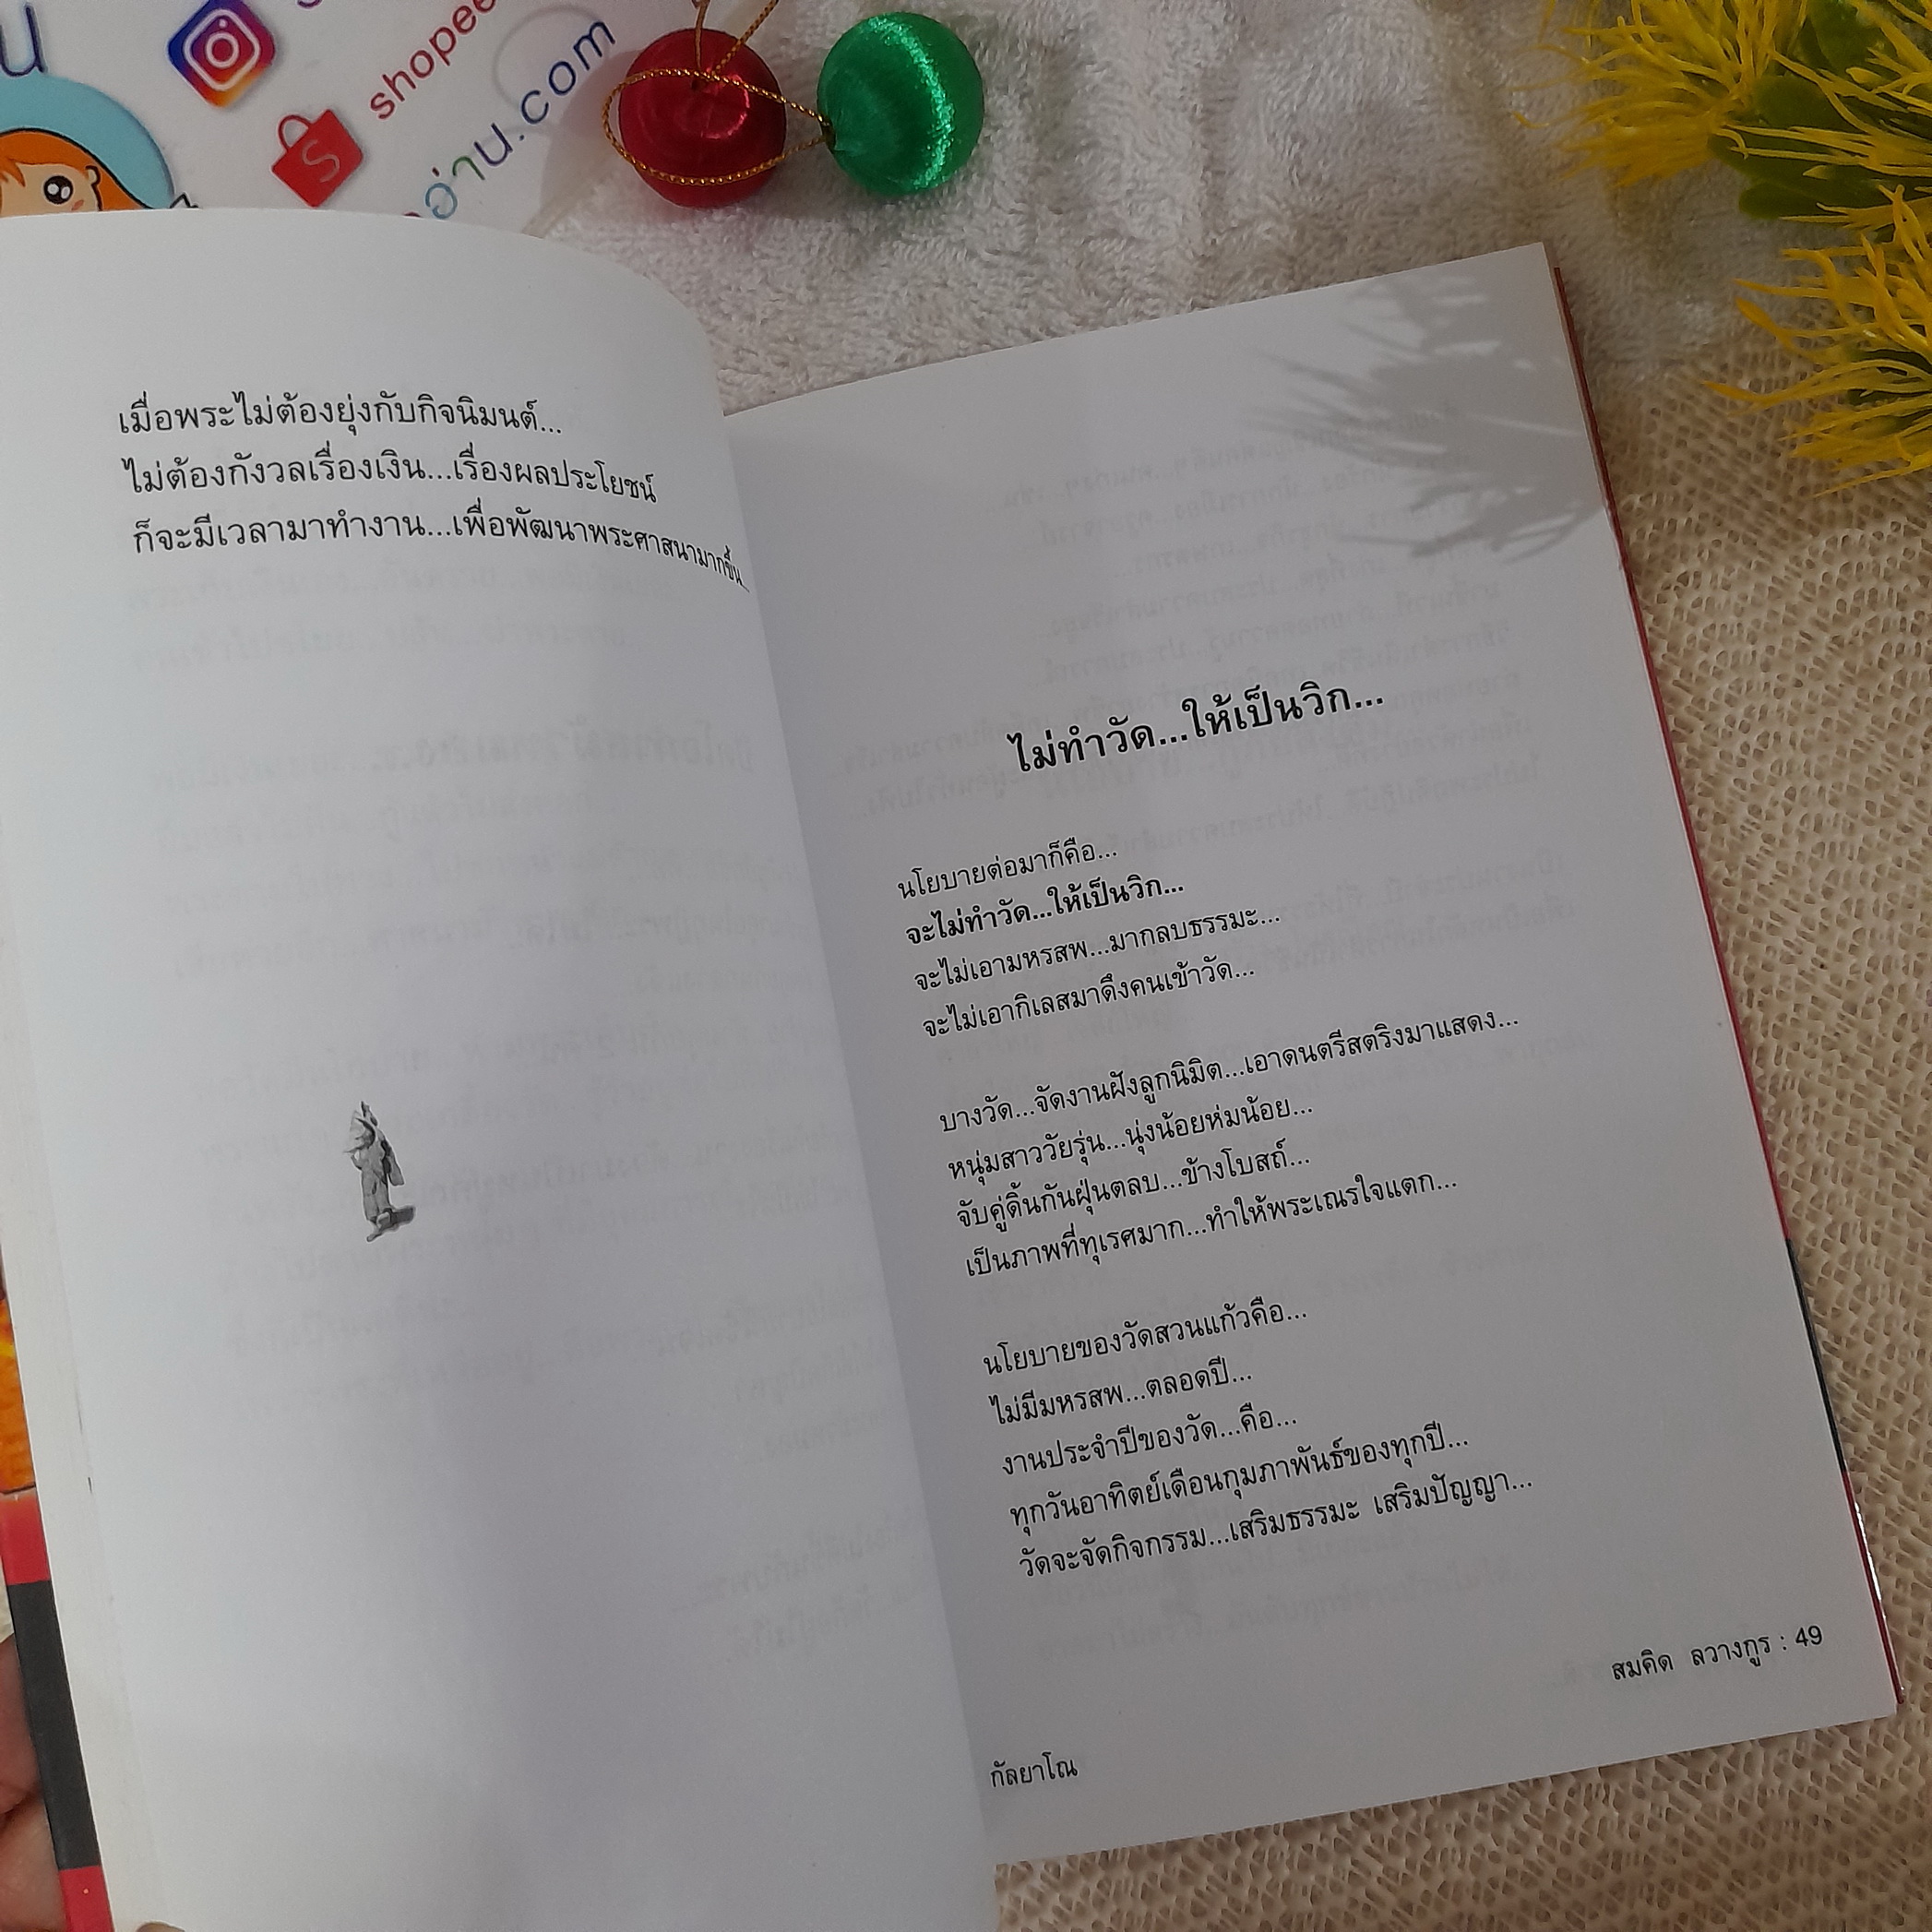 shopee
อ่าน.com
เมื่อพระไม่ต้องยุ่งกับกิจนิมนต์...
ไม่ต้องกังวลเรื่องเงิน...เรื่องผลประโยชน์
ก็จะมีเวลามาทำงาน...เพื่อพัฒนาพระศาสนามากขึ้น...
ไม่ทำวัด...ให้เป็นวิก...
นโยบายต่อมาก็คือ...
จะไม่ทำวัด...ให้เป็นวิก...
จะไม่เอามหรสพ...มากลบธรรมะ...
จะไม่เอากิเลสมาดึงคนเข้าวัด...
บางวัด...จัดงานฝังลูกนิมิต...เอาดนตรีสตริงมาแสดง...
หนุ่มสาววัยรุ่น...นุ่งน้อยห่มน้อย...
จับคู่ดิ้นกันฝุ่นตลบ...ข้างโบสถ์...
เป็นภาพที่ทุเรศมาก...ทำให้พระเณรใจแตก...
นโยบายของวัดสวนแก้วคือ...
ไม่มีมหรสพ...ตลอดปี...
งานประจำปีของวัด...คือ...
ทุกวันอาทิตย์เดือนกุมภาพันธ์ของทุกปี...
วัดจะจัดกิจกรรม...เสริมธรรมะ เสริมปัญญา...
สมคิด ลวางกูร : 49
กัลยาโณ